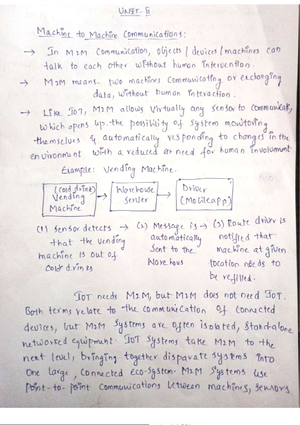 UNIT-II
Machine to Machine Communications:
→ In M2M Communication, objects / devices / machines can
talk to each other without human intervention.
→ M2M means two machines communicating or exchanging
data, without human interaction.
→ Like IoT, M2M allows virtually any sensor to communicate,
which opens up the possibility of system monitoring
themselves & automatically responding to changes in the
environment with a reduced need for human involvement
Example: Vending Machine.
(Cold drink) Vending Machine → Warehouse Server → Driver (Mobileapp)
(1) Sensor detects that the vending machine is out of Cold drinks
→ (2) Message is automatically sent to the Warehouse
→ (3) Route driver is notified that machine at given location needs to be refilled.
IOT needs M2M, but M2M does not need IOT.
Both terms relate to the communication of connected
devices, but M2M systems are often isolated, stand-alone
networked equipment. IoT systems take M2M to the
next level, bringing together disparate systems into
one large, connected eco-system. M2M systems use
Point-to-point communications between machines, sensors